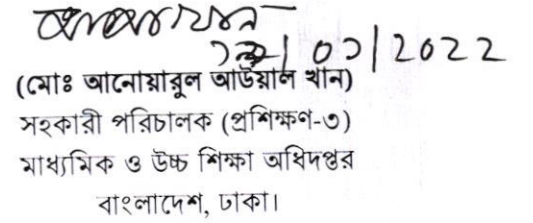 (মোঃ আনোয়ারুল আউয়াল খান)
সহকারী পরিচালক (প্রশিক্ষণ-৩)
মাধ্যমিক ও উচ্চ শিক্ষা অধিদপ্তর
বাংলাদেশ, ঢাকা।